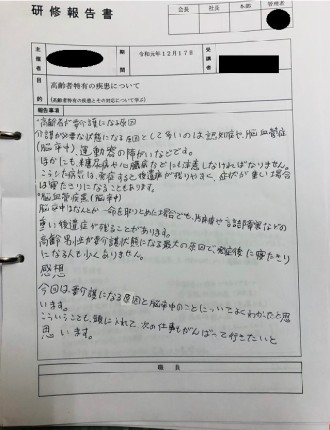 研修報告書
会長 社長 本部 管理者
主催者 期間 令和元年12月17日 受講者
目的 高齢者特有の疾患について
(高齢者特有の疾患とその対応について学ぶ)
報告事項
*高齢者が要介護になる原因
介護が必要な状態になる原因として多いのは認知症や、脳血管症
(脳卒中)、運動器の障がいなどです。
ほかにも、糖尿病や心臓病などにも注意しなければなりません。
こうした病気は、発症すると後遺症が残りやすく、症状が重い場合
は寝たきりになることもあります。
*脳血管疾患(脳卒中)
脳卒中はなんとか一命を取りとめた場合でも、片麻痺や言語障害などの
重い後遺症が残ることがあります。
高齢男性が要介護状態になる最大の原因で、発症後に寝たきり
になる人も少なくありません。
感想
今回は要介護になる原因と脳卒中のことについてよくわかったと思
います。
こういうことも、頭に入れて、次の仕事もがんばって行きたいと
思います。
職長